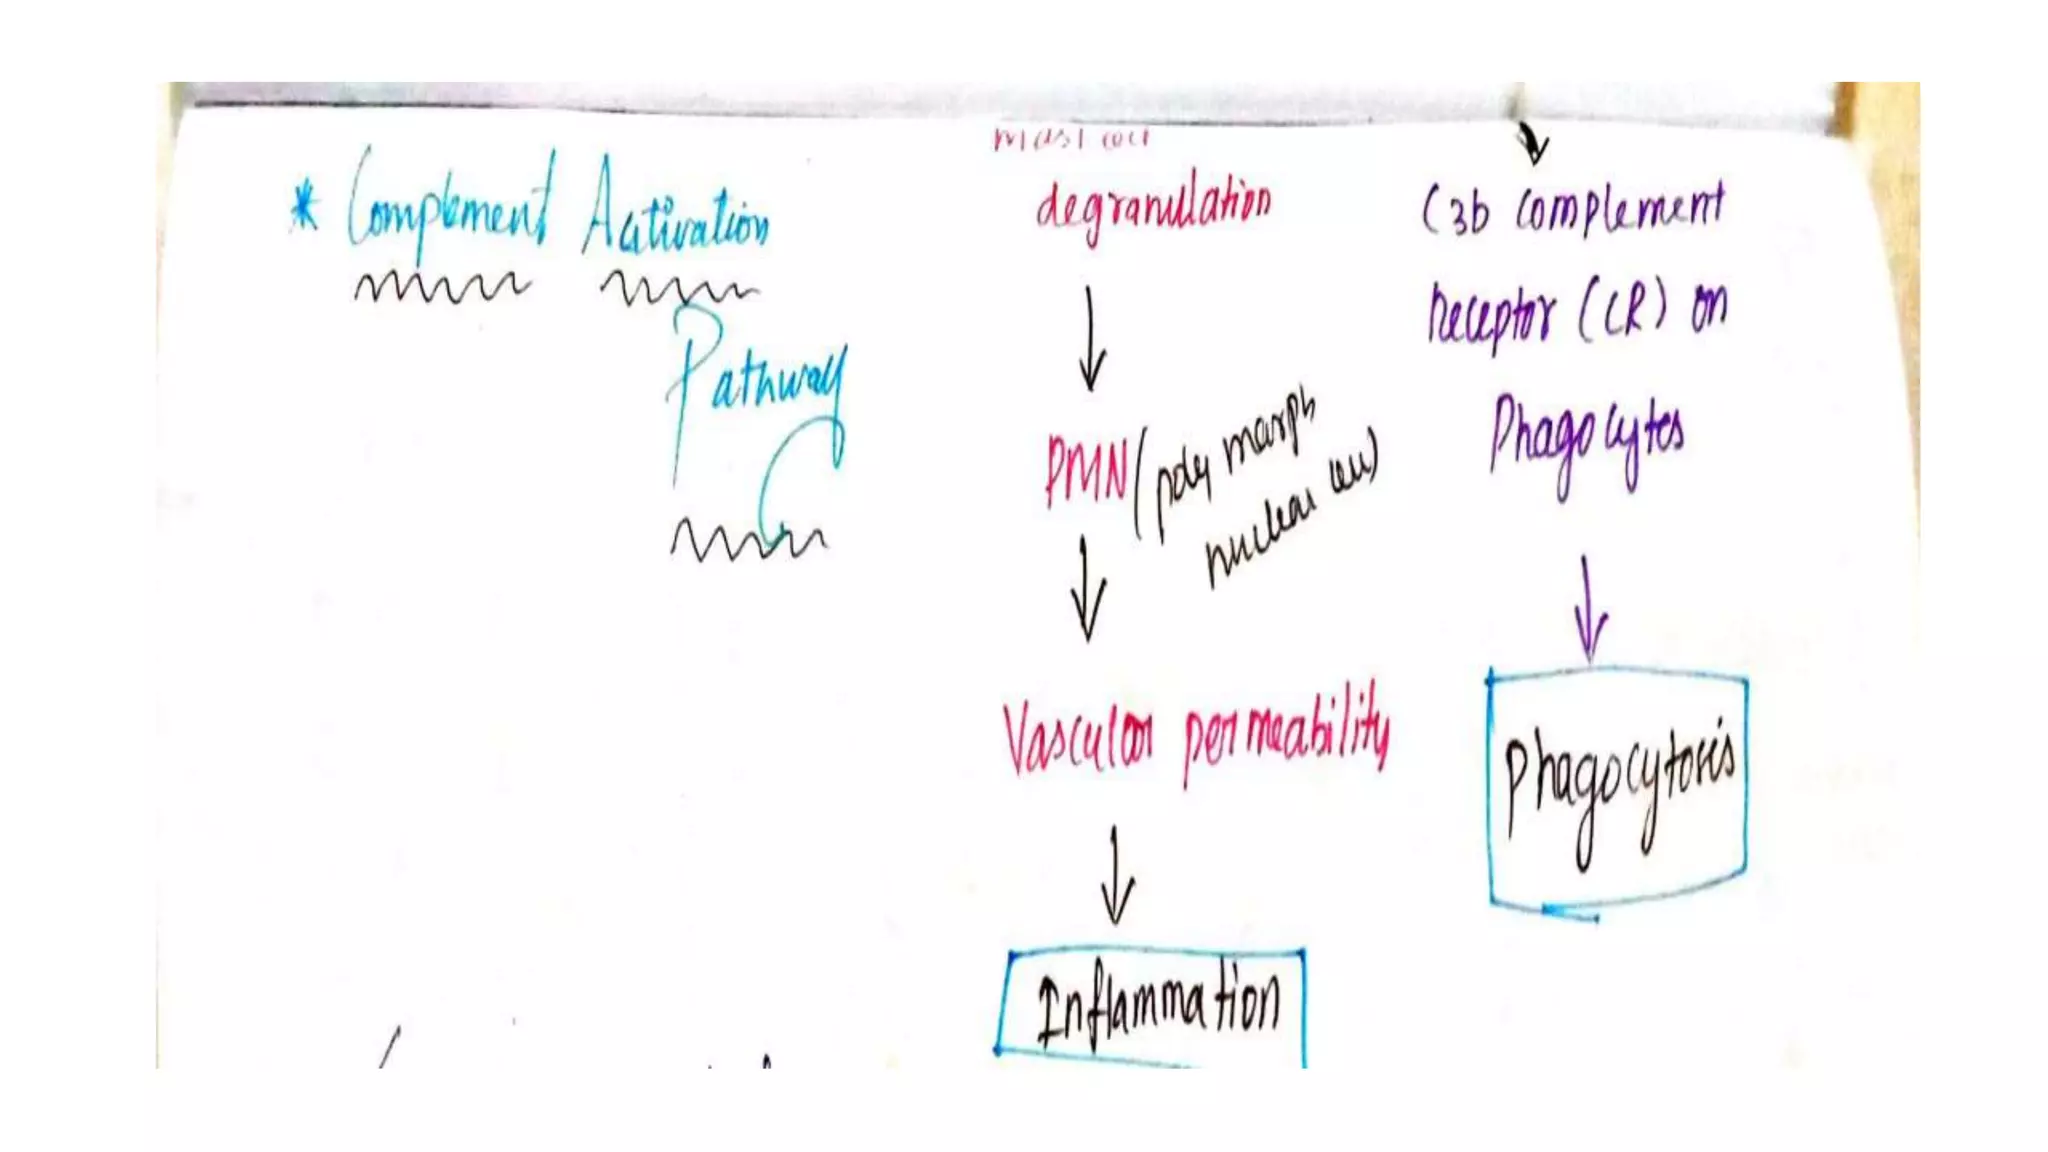 * Complement Activation
Pathway
mast cell
degranulation
PMN (poly morph
nuclear cell)
Vascular permeability
Inflammation
C3b complement
Receptor (CR) on
Phagocytes
Phagocytosis